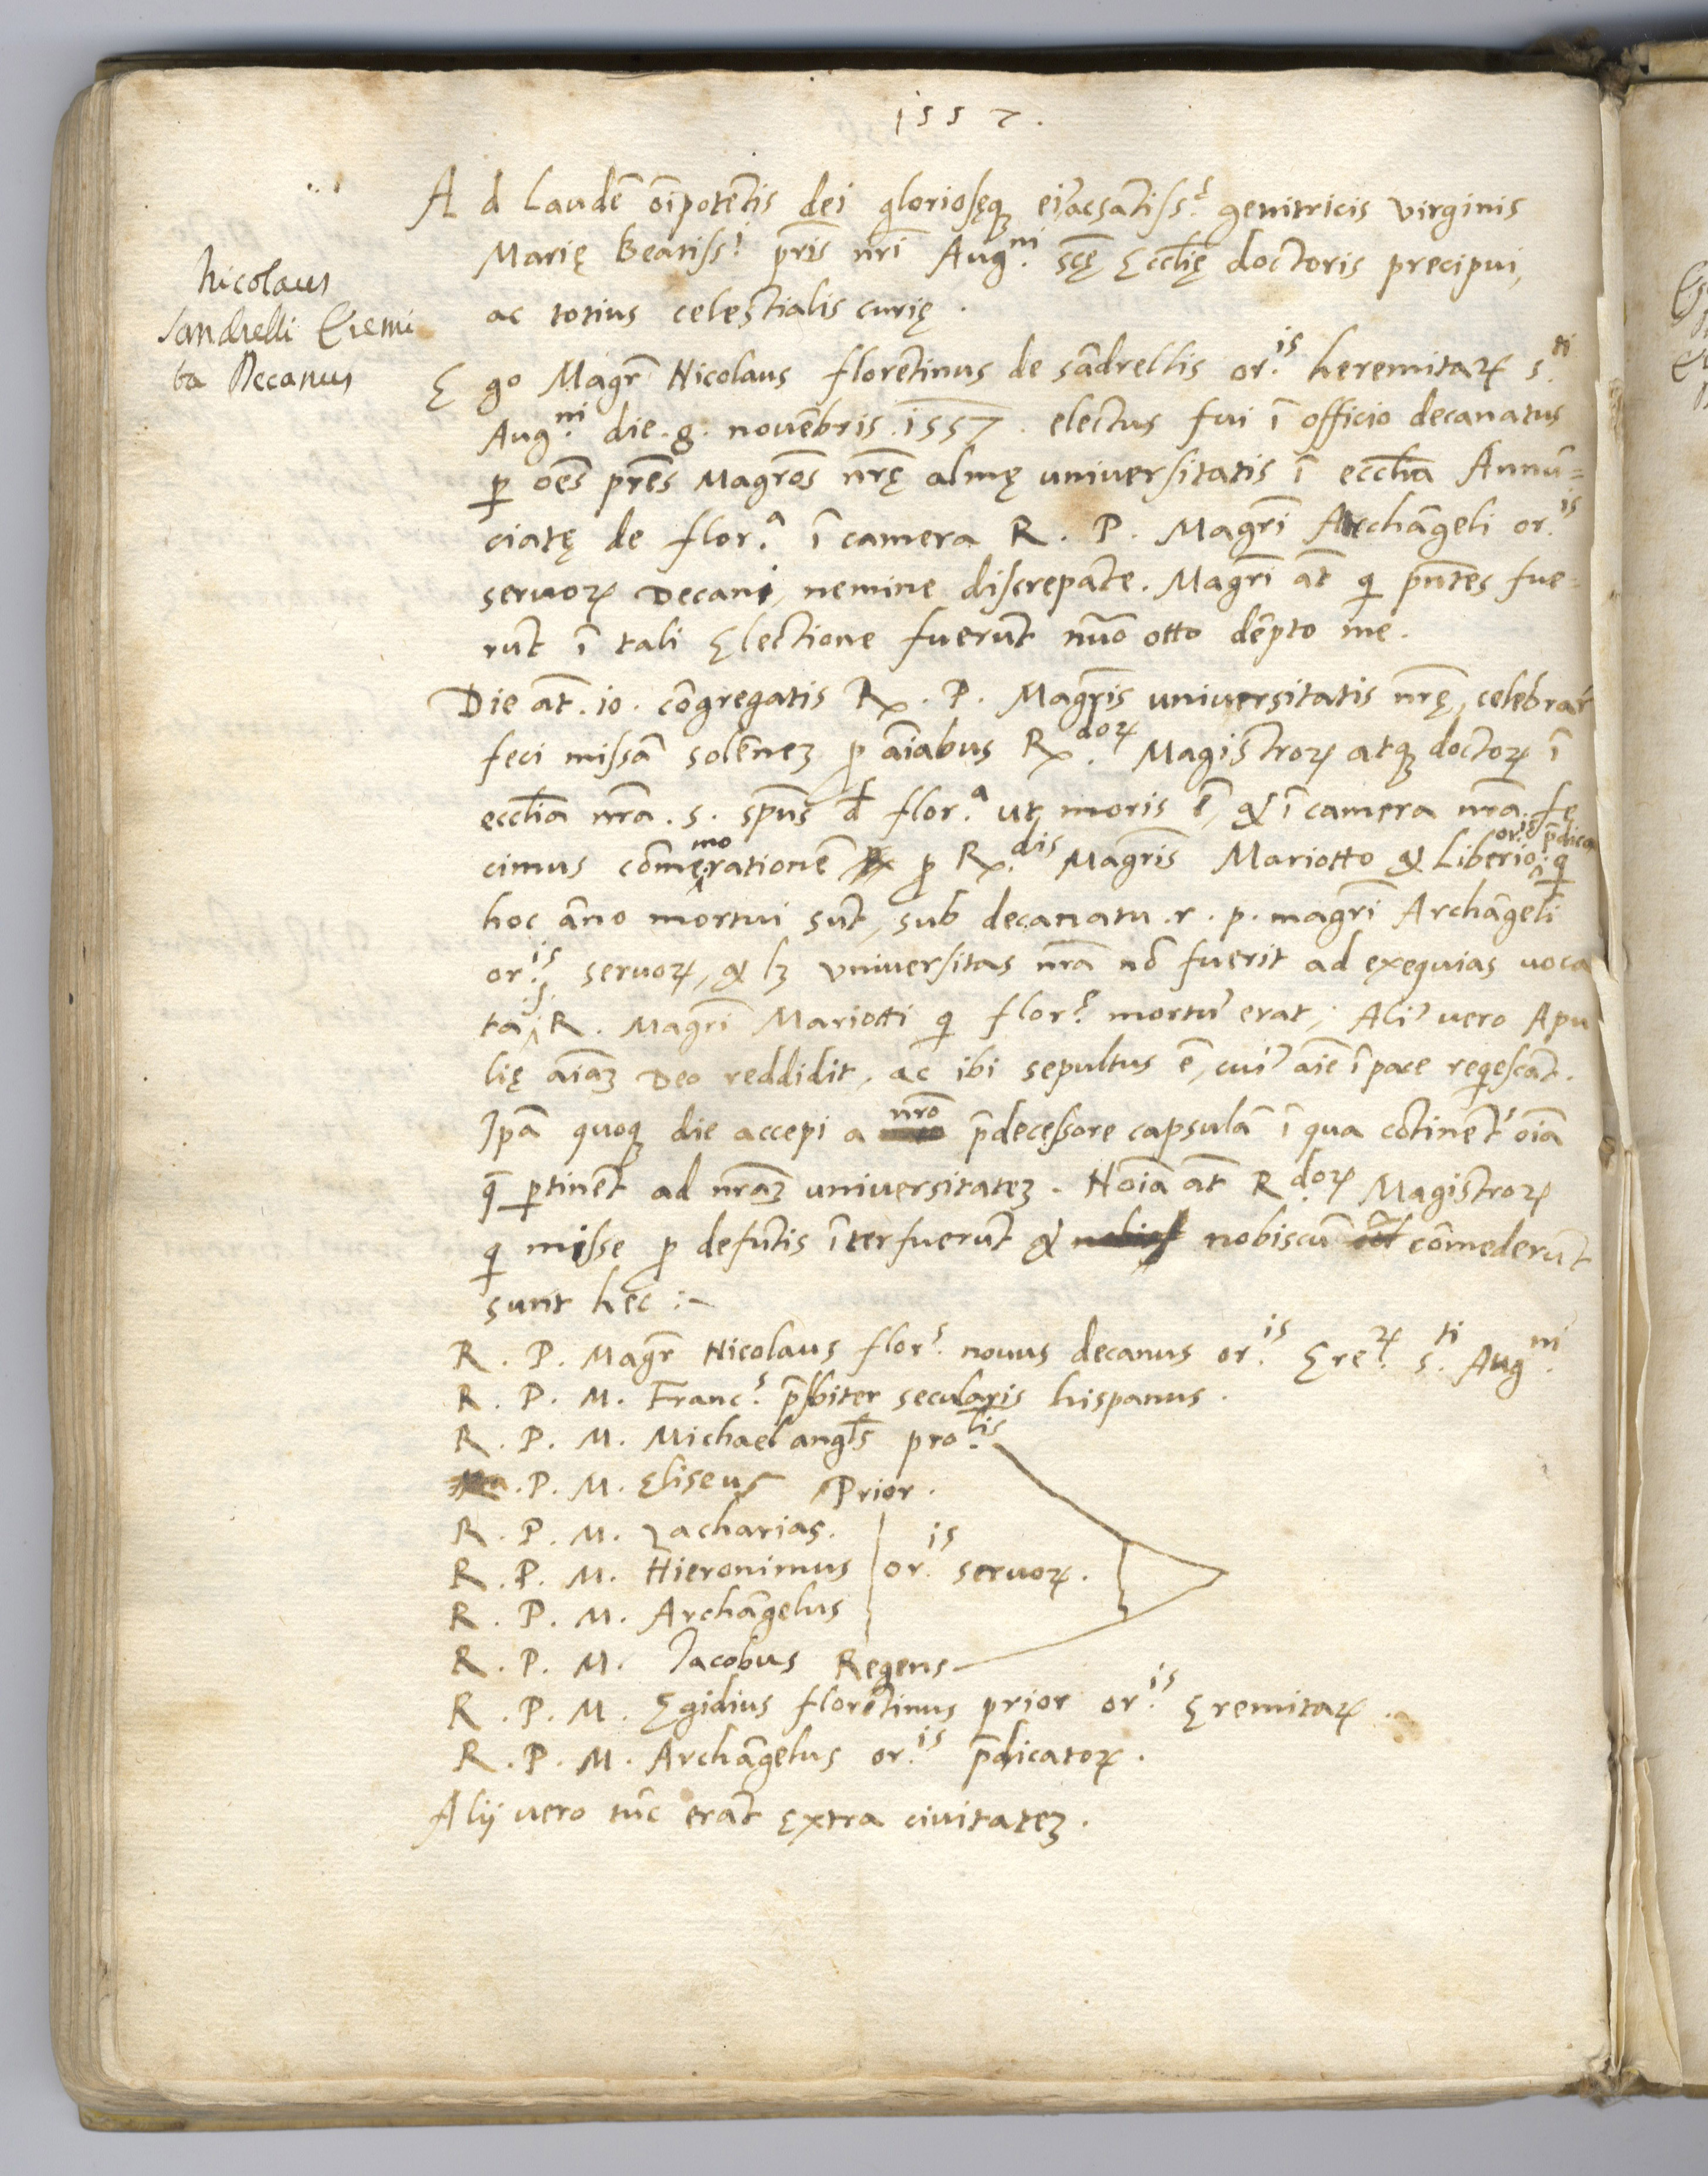 1557.
Ad Laudē oīpotētis dei glorioſęq; ei' ac sātiſs.ᵉ genitricis virginis
Marię Beatiſs.ⁱ pr̄is nr̄i Aug.ⁿⁱ sc̄ę Eccl̄ię doctoris precipui,
ac totius celestialis curię.
Nicolaus
Sandrelli Eremi
ta Decanus
Ego Magr̄ Nicolaus florētinus de sādrellis or.ⁱˢ heremitaꝝ s.ᵗⁱ
Aug.ⁿⁱ die .9. nouēbris .1557. electus fui ī officio decanatus
ꝑ oēs pr̄es Magr̄os nr̄ę almę universitatis ī eccl̄ia Annū=
ciatę de flor.ᵃ ī camera R. P. Magr̄i Archāgeli or.ⁱˢ
seruoꝝ Decani, nemine diſcrepāte. Magr̄i at̄ q̄ pn̄tes fue=
rūt ī tali Electione fuerūt nūo otto dēpto me.
Die at̄ .10. cōgregatis R. P. Magr̄is universitatis nr̄ę, celebrar̄
feci miſsā solēnez ꝓ aīabus R.ᵈᵒꝝ Magistroꝝ atq; doctoꝝ ī
eccl̄ia nr̄a .S. Sp̄us đ flor.ᵃ ut moris ē, & ī camera nr̄a fe
cimus cōmemorationē ꝓ R.ᵈⁱˢ Magr̄is Mariotto & Liberio or.ⁱˢ p̄dica. q̄
hoc āno mortui sūt, sub decanatu .r. p. magr̄i Archāgeli
or.ⁱˢ seruoꝝ, & lꝫ universitas nr̄a nō fuerit ad exequias uoca
ta .s. R. Magr̄i Mariotti q̄ flor.ᵉ mortu' erat; Ali' uero Apu
lię aīaꝫ Deo reddidit, ac ibi sepultus ē, cui' aīe ī pace reqeſcāt.
Ipā quoq; die accepi a nr̄o p̄deceſsore capsulā ī qua cōtinēt' oīa
q̄ ꝑtinēt ad nr̄aꝫ universitateꝫ. Noīa at̄ R.ᵈᵒꝝ Magistroꝝ
q̄ miſse ꝓ defūtis īterfuerūt & nobiscū cōmederūt
sunt hec :~
R. P. Magr̄ Nicolaus flor.ˢ nouus decanus or.ⁱˢ Ere.ꝝ s.ᵗⁱ Aug.ⁿⁱ
R. P. M. Franc.ˢ p̄ſbiter secularis hispanus.
R. P. M. Michael angl̄s pro.ˡⁱˢ
P. M. Eliseus Prior.
R. P. M. Zacharias.
R. P. M. Hieronimus or.ⁱˢ seruoꝝ.
R. P. M. Archāgelus
R. P. M. Jacobus Regens
R. P. M. Egidius florētinus prior or.ⁱˢ Eremitaꝝ.
R. P. M. Archāgelus or.ⁱˢ p̄dicatoꝝ.
Alij uero tūc erāt extra ciuitateꝫ.